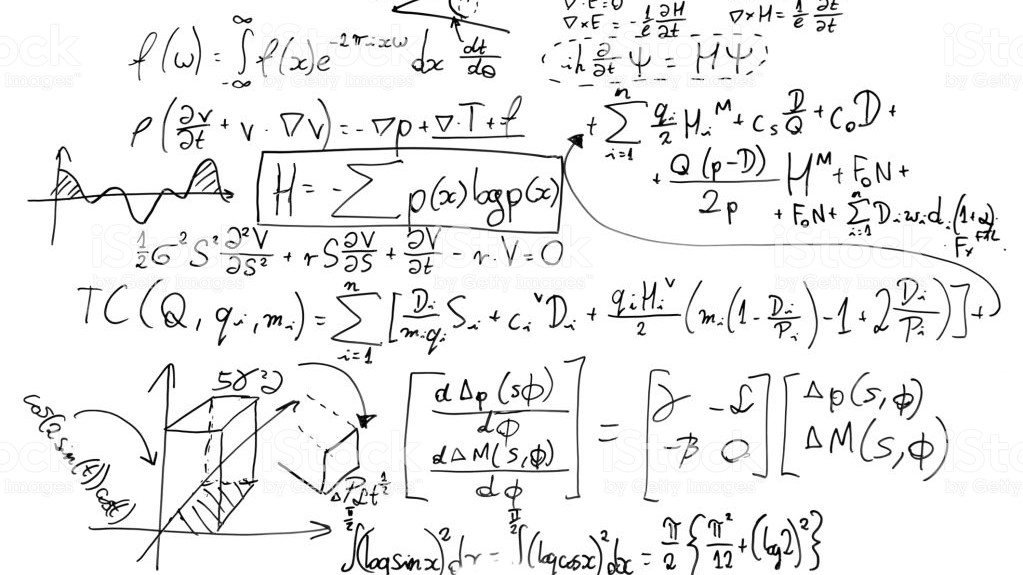 ∇·E=0
∇×E = -1/e ∂H/∂t ∇×H = 1/e ∂E/∂t
f(ω) = ∫_{-∞}^{∞} f(x)e^{-2πixω} dx dt/dθ
iħ ∂/∂t Ψ = HΨ
ρ(∂v/∂t + v·∇v) = -∇p + ∇·T + f
+ Σ_{i=1}^{n} q_i/2 H_i^M + c_s D/Q + c_0 D +
+ Q(p-D)/2p H^M + F_0N +
+ F_0N + Σ_{i=1}^{n} D_i w_i d_i
H = -Σ p(x) log p(x)
1/2 σ²S² ∂²V/∂S² + rS ∂V/∂S + ∂V/∂t - r·V = 0
TC(Q, q_i, m_i) = Σ_{i=1}^{n} [D_i/(m_i q_i) S_i + c_i^v D_i + q_i H_i^v/2 (m_i(1 - D_i/P_i) - 1 + 2 D_i/P_i)] +
[dΔp(s,ϕ)/dϕ dΔM(s,ϕ)/dϕ] = [γ -L -β 0] [Δp(s,ϕ) ΔM(s,ϕ)]
∫^{π/2} (log sin x)² dx = ∫^{π/2} (log cos x)² dx = π/2 {π²/12 + (log 2)²}
iStock
by Getty Images™